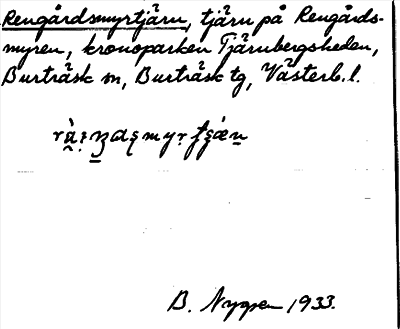 Rengårdsmyrtjärn, tjärn på Rengårds-
myren, kronoparken Tjärnbergsheden,
Burträsk sn, Burträsk tg, Västerb. l.
B. Nygren 1933.